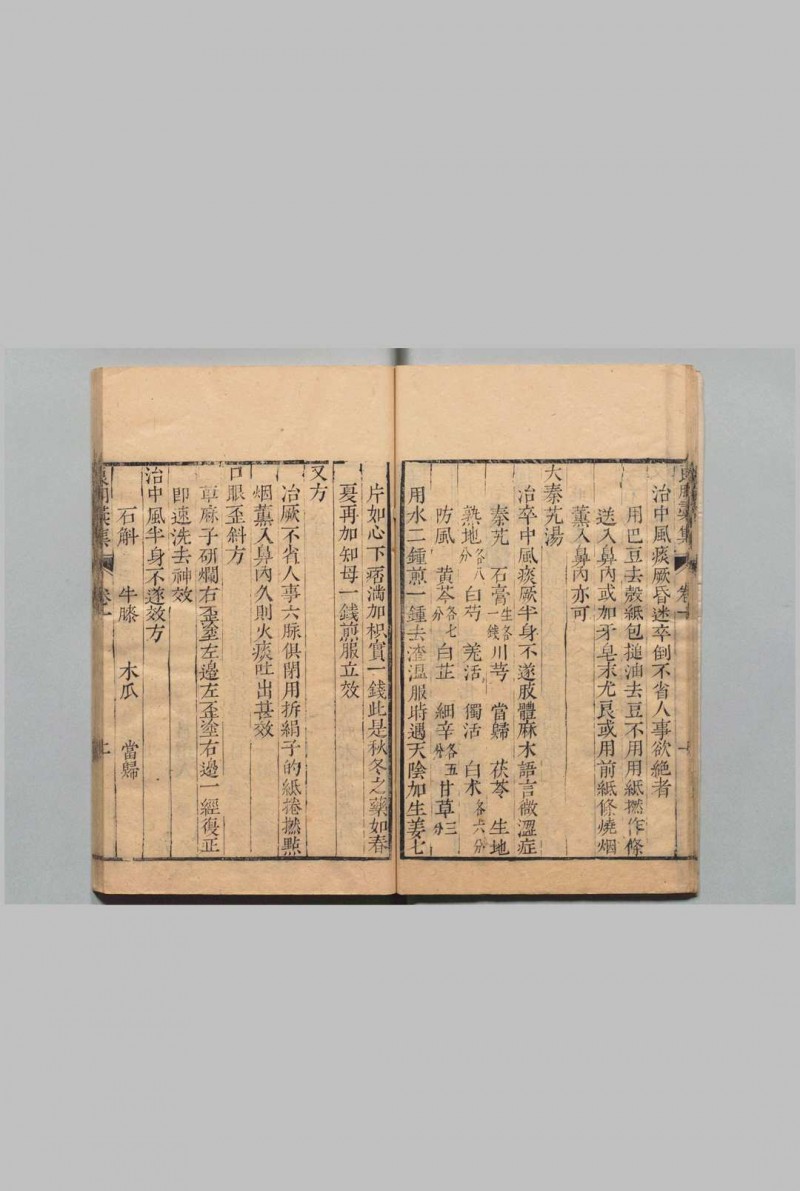 卷一
治中風痰厥昏迷卒倒不省人事欲絶者
用巴豆去殼紙包搥油去豆不用用紙撚作條
送入鼻內或加牙皂末尤良或用前紙條燒烟
薰入鼻內亦可
大秦艽湯
治卒中風痰厥半身不遂肢體麻木語言微澀症
秦艽 石膏生各一錢 川芎 當歸 茯苓 生地
熟地各八分 白芍 羌活 獨活 白术各六分
防風 黃芩各七分 白芷 細辛各五分 甘草三分
用水二鍾煎一鍾去渣溫服時遇天陰加生姜七
片如心下痞滿加枳實一錢此是秋冬之藥如春
夏再加知母一錢煎服立效
又方
治厥不省人事六脉俱閉用拆絹子的紙捲撚點
烟薰入鼻內久則火痰吐出甚效
口眼歪斜方
草麻子研爛右歪塗左邊左歪塗右邊一經復正
即速洗去神效
治中風半身不遂效方
石斛 牛膝 木瓜 當歸
卷一